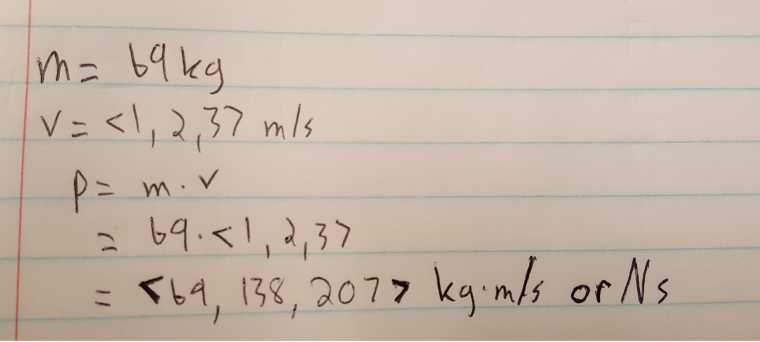 m = 69 kg
v = <1, 2, 3> m/s
p = m · v
= 69 · <1, 2, 3>
= <69, 138, 207> kg·m/s or Ns